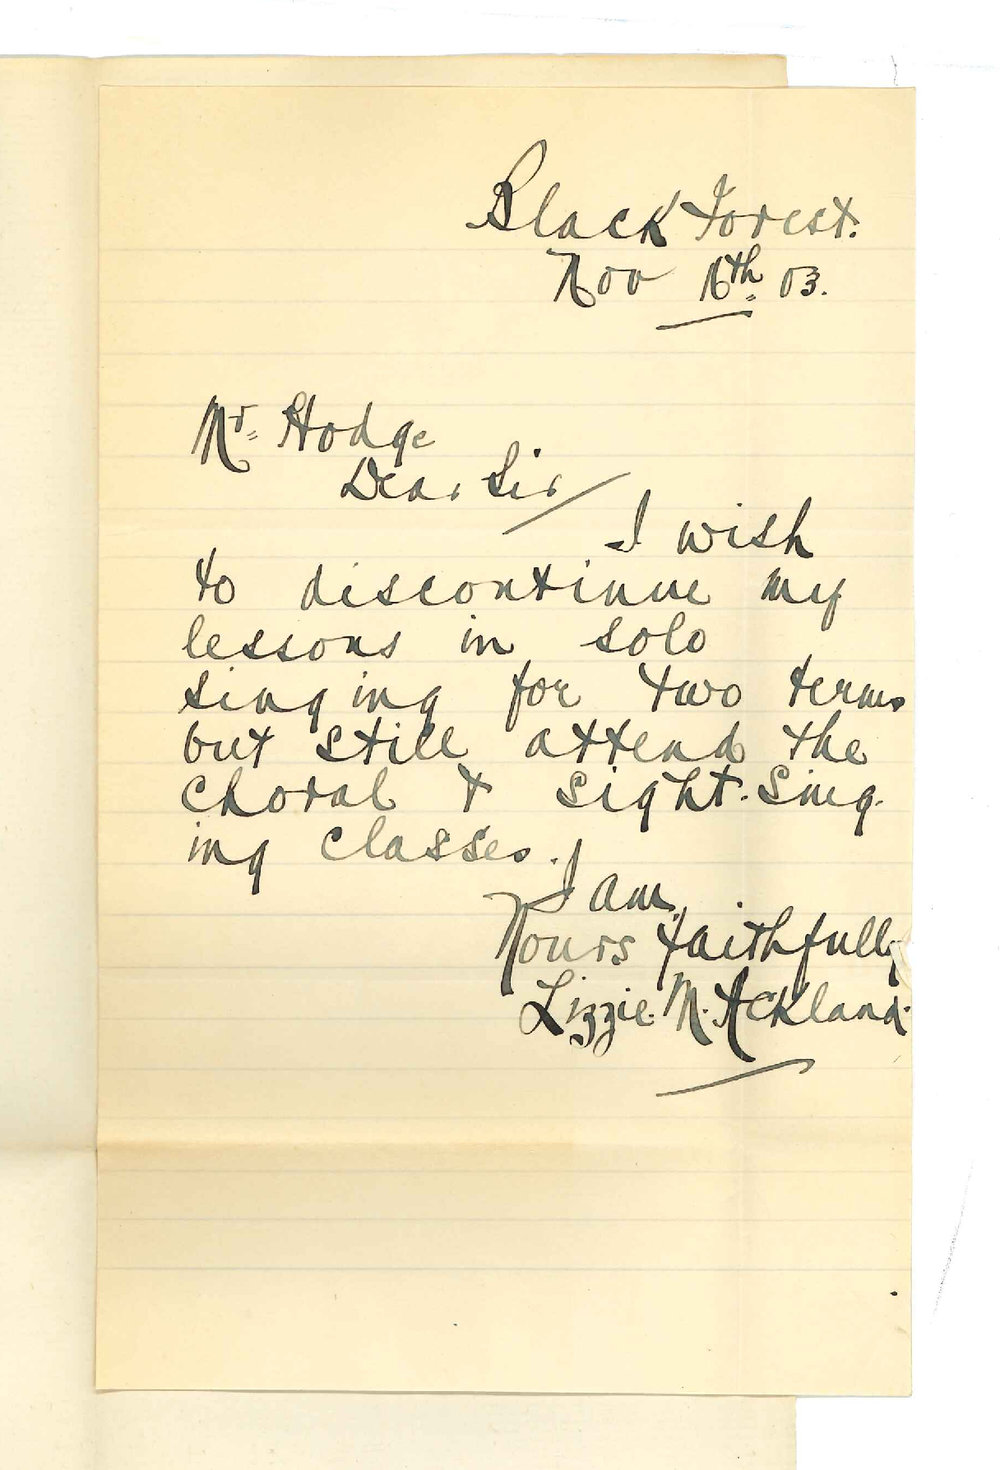 Black Forest.
Nov 16th 03.
Mr. Hodge
Dear Sir/
I wish
to discontinue my
lessons in solo
singing for two terms
but still attend the
Choral & Sight-Sing-
ing Classes.
I am,
Yours faithfully
Lizzie. M. Ackland.